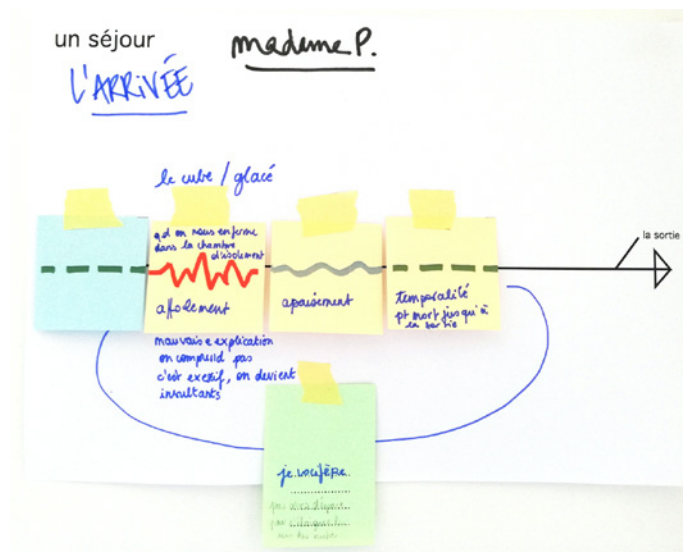 un séjour
madame P.
L'ARRIVÉE
le cube / glacé
la sortie
qd on nous enferme
dans la chambre
d'isolement
affolement
apaisement
temporalité
pt mort jusqu'à
la sortie
mauvaise explication
on comprend pas
c'est excessif, on devient
insultants
je vocifère